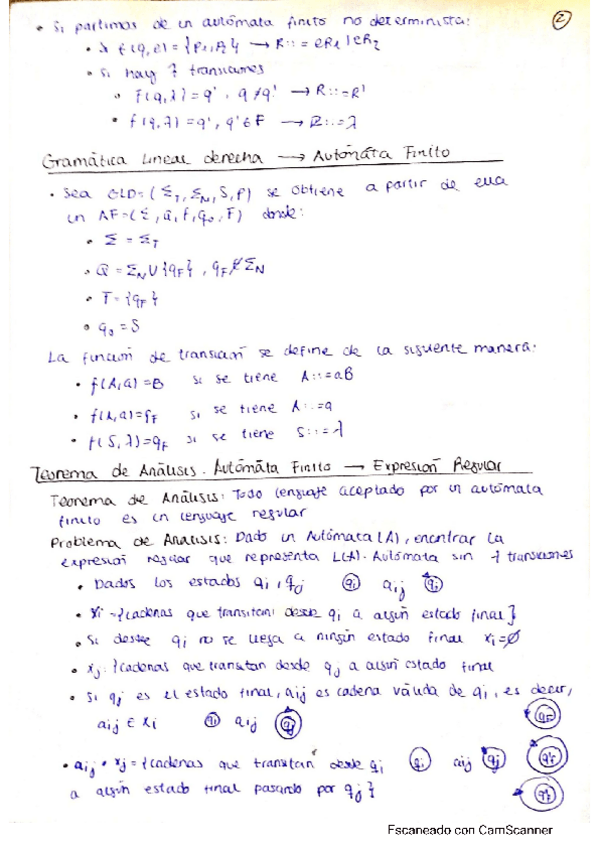 ②
• Si partimos de un autómata finito no determinista:
• λ f(q,e) = {P1,P2} → R::= eR1 | eR2
• Si hay λ transiciones
• f(q,λ) = q', q≠q' → R::=R'
• f(q,λ) = q', q'∈F → R::=λ
Gramática Lineal derecha → Autómata Finito
• Sea GLD=(ΣT, ΣN, S, P) se obtiene a partir de ella
un AF=(Σ, Q, f, q0, F) donde:
• Σ = ΣT
• Q = ΣN U {qF}, qF∉ΣN
• F = {qF}
• q0 = S
La función de transición se define de la siguiente manera:
• f(A,a)=B si se tiene A::=aB
• f(A,a)=qF si se tiene A::=a
• f(S,λ)=qF si se tiene S::=λ
Teorema de Análisis. Autómata Finito → Expresión Regular
Teorema de Análisis: Todo lenguaje aceptado por un autómata
finito es un lenguaje regular
Problema de Análisis: Dado un Autómata (A), encontrar la
expresión regular que representa L(A). Autómata sin λ transiciones
• Dados los estados qi, qj qi aij qj
• xi = {cadenas que transitan desde qi a algún estado final}
• Si desde qi no se llega a ningún estado final xi=∅
• xj. {cadenas que transitan desde qj a algún estado final
• Si qj es el estado final, aij es cadena válida de qi, es decir,
aij ∈ xi qi aij qj qF
• aij • xj = {cadenas que transitan desde qi qi aij qj qF
a algún estado final pasando por qj} qF
Escaneado con CamScanner